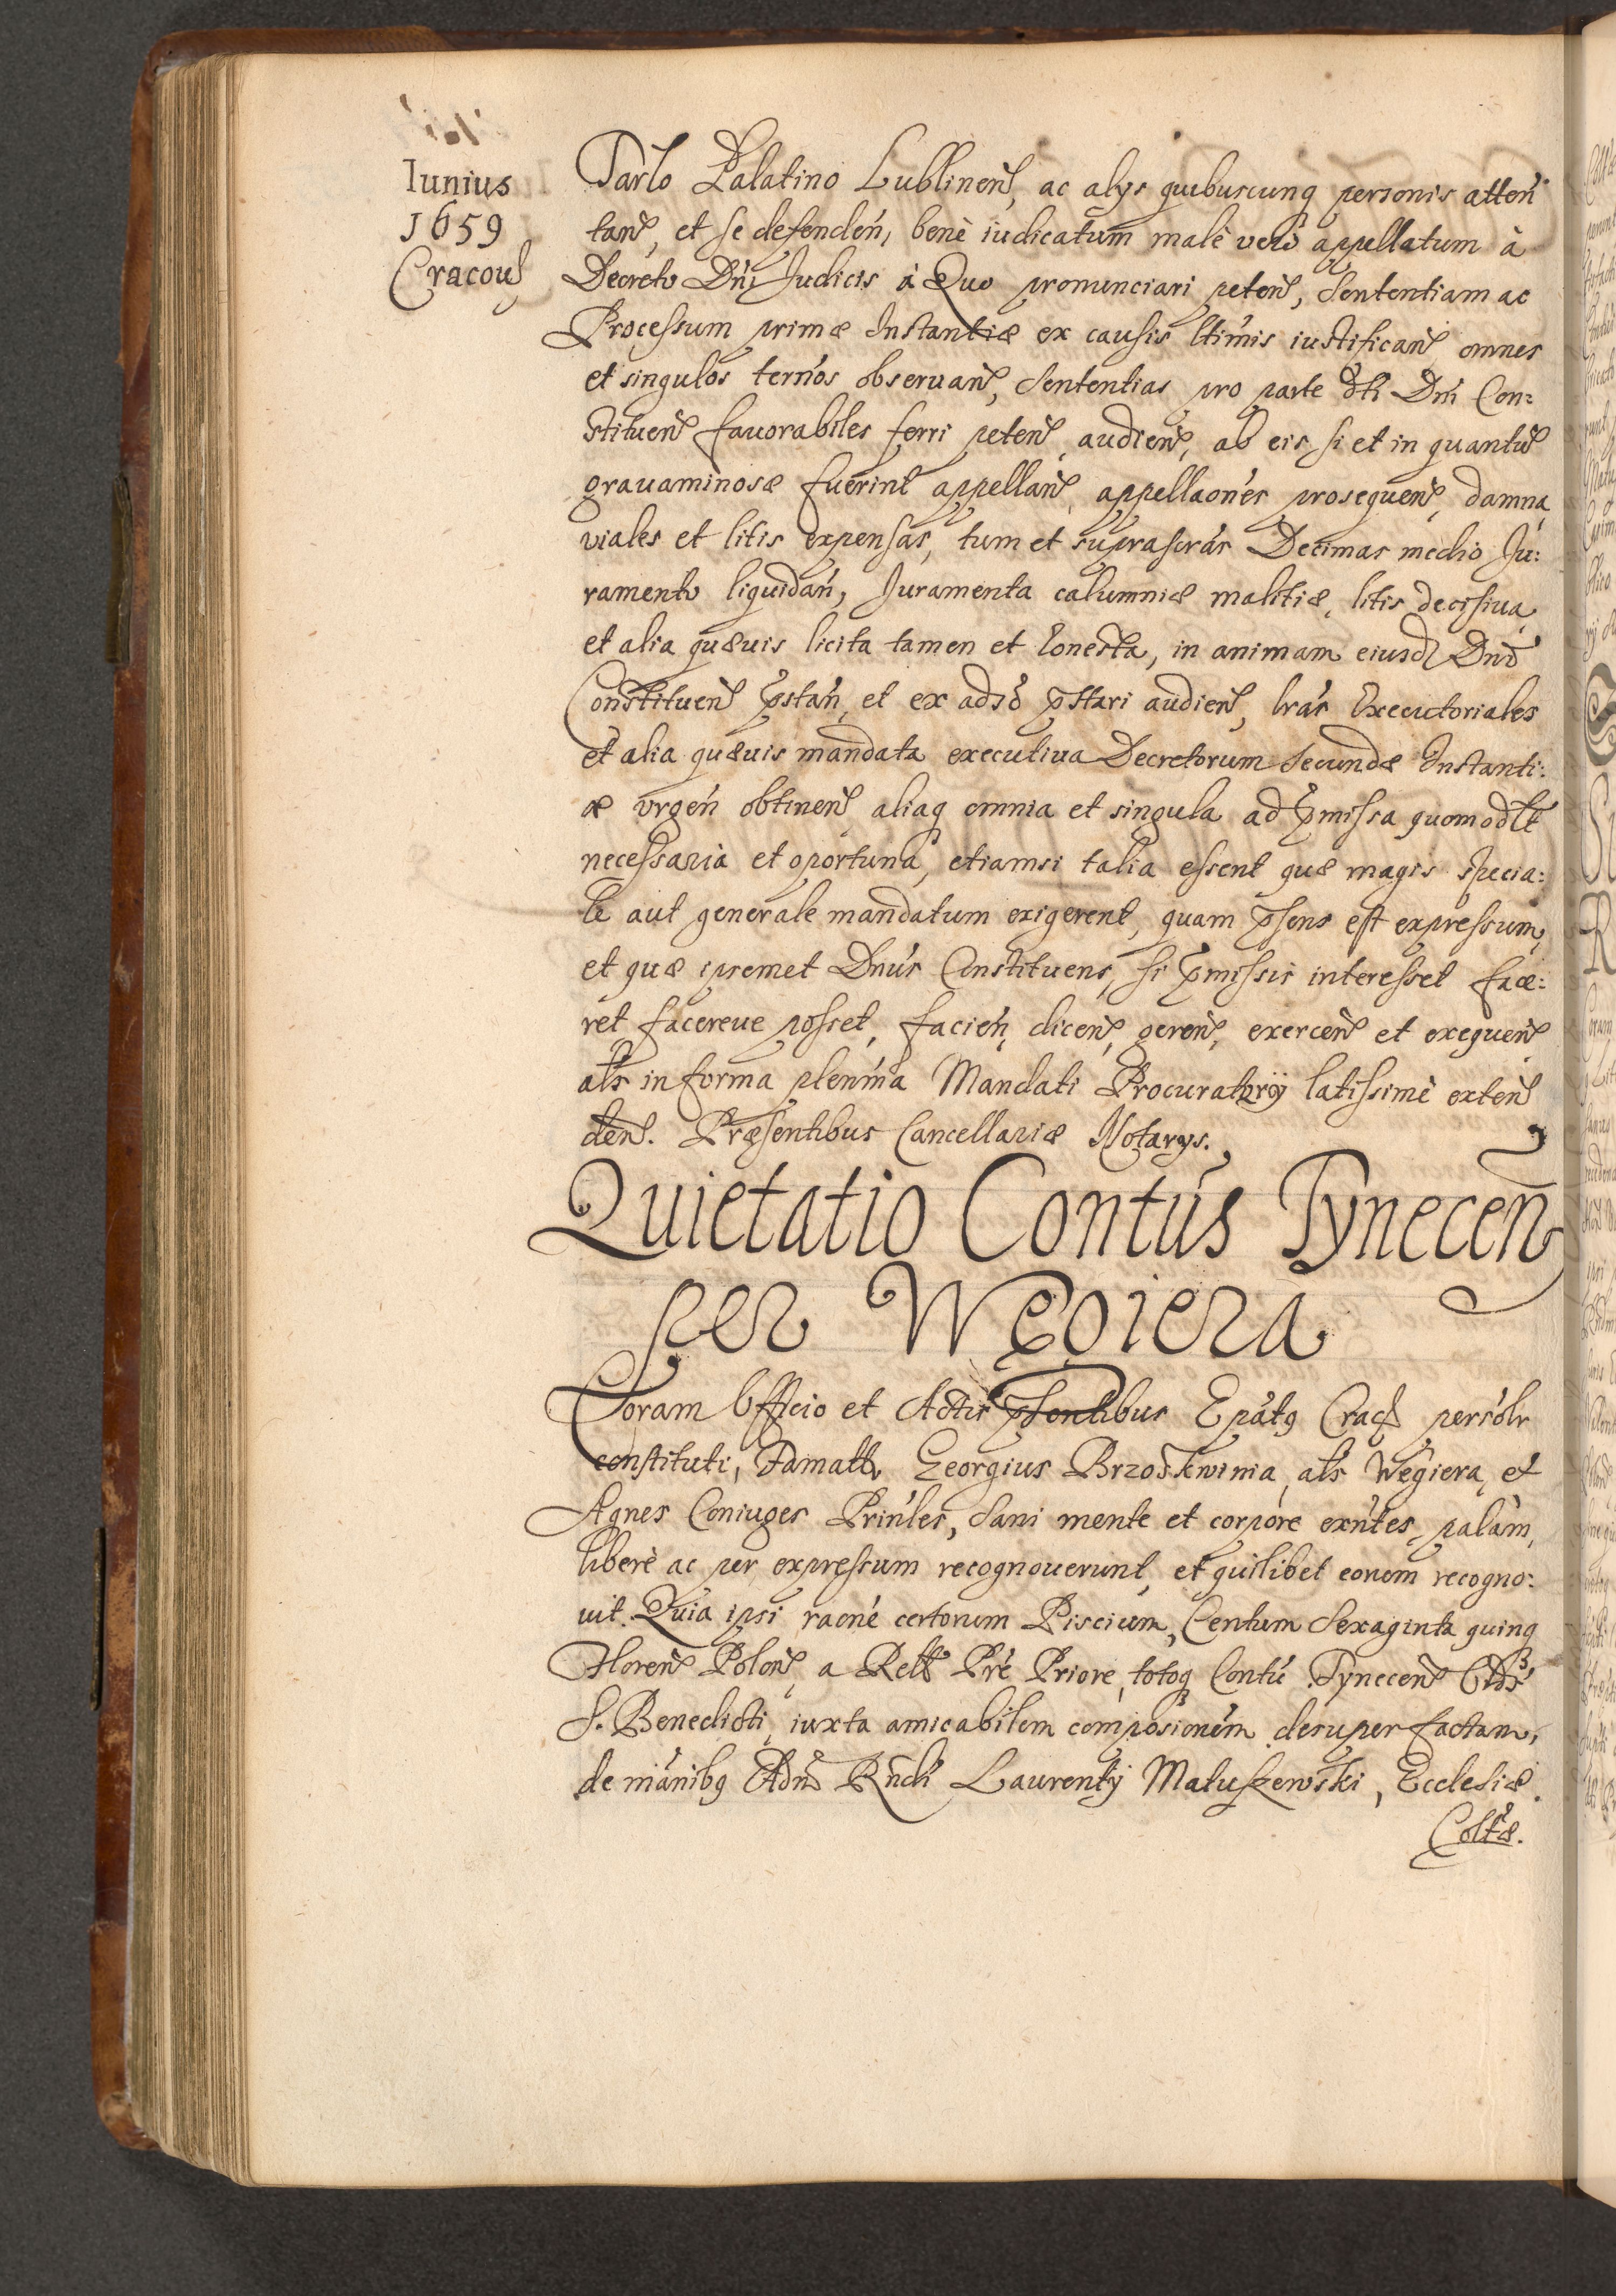 Iunius
1659
Cracou
Tarlo Palatino Lublinen, ac alys quibuscunq personis atten
tan, et se defenden, benè iudicatum malè verò appellatum à
Decreto Dni Judicis à Quo pronunciari peten, Sententiam ac
Processum primæ Instantiæ ex causis ltimis iustifican omnes
et singulos terńos obseruan, Sententias pro parte dti Dni Con:
stituen fauorabiles ferri peten, audien, ab eis si et in quantū
grauaminosæ fuerint appellan, appellaones prosequen, damna
viales et litis expensas, tum et suprascras Decimas medio Ju:
ramento liquidan, Juramenta calumniæ malitiæ, litis decisiua
et alia quæuis licita tamen et honesta, in animam eiusd Dni
Constituen pstan, et ex adso pstari audien, lras Executoriales
et alia quæuis mandata executiua Decretorum Secundæ Instanti:
æ vrgen obtinen aliaq omnia et singula ad pmissa quomodlt
necessaria et oportuna, etiamsi talia essent quæ magis specia:
le aut generale mandatum exigerent, quam psens est expressum,
et quæ ipsemet Dnus Constituens, si pmissis interesset face:
ret facereue posset, facien, dicen, geren, exercen et exequen
als in forma plenma Mandati Procuratorÿ latissimè exten
den. Præsentibus Cancellariæ Notarys.
Quietatio Contus Tynecen
per Węgiera
Coram Officio et Actis psentibus Epatq Crac persolr
constituti, Famatt Georgius Brzoskwinia, als Węgiera, et
Agnes Coniuges Prinles, Sani mente et corpore exntes palàm,
liberè ac per expressum recognouerunt, et quilibet eorum recogno:
uit. Quia ipsi raone certorum Piscium, Centum Sexaginta quinq
Floren Polon, a Rell Pre Priore, totoq Contu Tynecen Ords
S. Benedicti, iuxta amicabilem composionem desuper factam,
de manibq Adm Rndi Laurentÿ Matuszewski, Ecclesiæ
Coltæ.